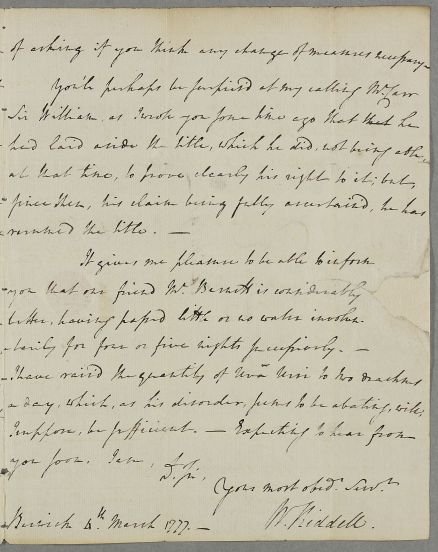 of asking if you think any change of measures necessary
You'le perhaps be surpris'd at my calling Mr. Carr
Sir William, as I wrote you some time ago that that he
had laid aside the title, which he did, not being able,
at that time, to prove clearly his right to it; but,
since then, his claim being fully ascertain'd, he has
resumed the title. —
It gives me pleasure to be able to inform
you that our friend Mr. Burnett is considerably
better, having passed little or no water involun-
-tarily for four or five nights successively. —
I have rais'd the quantity of Uva Ursi to two drachms
a day, which, as his disorder seems to be abating, will,
I suppose, be sufficient. — Expecting to hear from
you soon. I am,
D. Sir,
Your most obedt. Servt.
W. Riddell.
Berwick 4th. March 1777. —